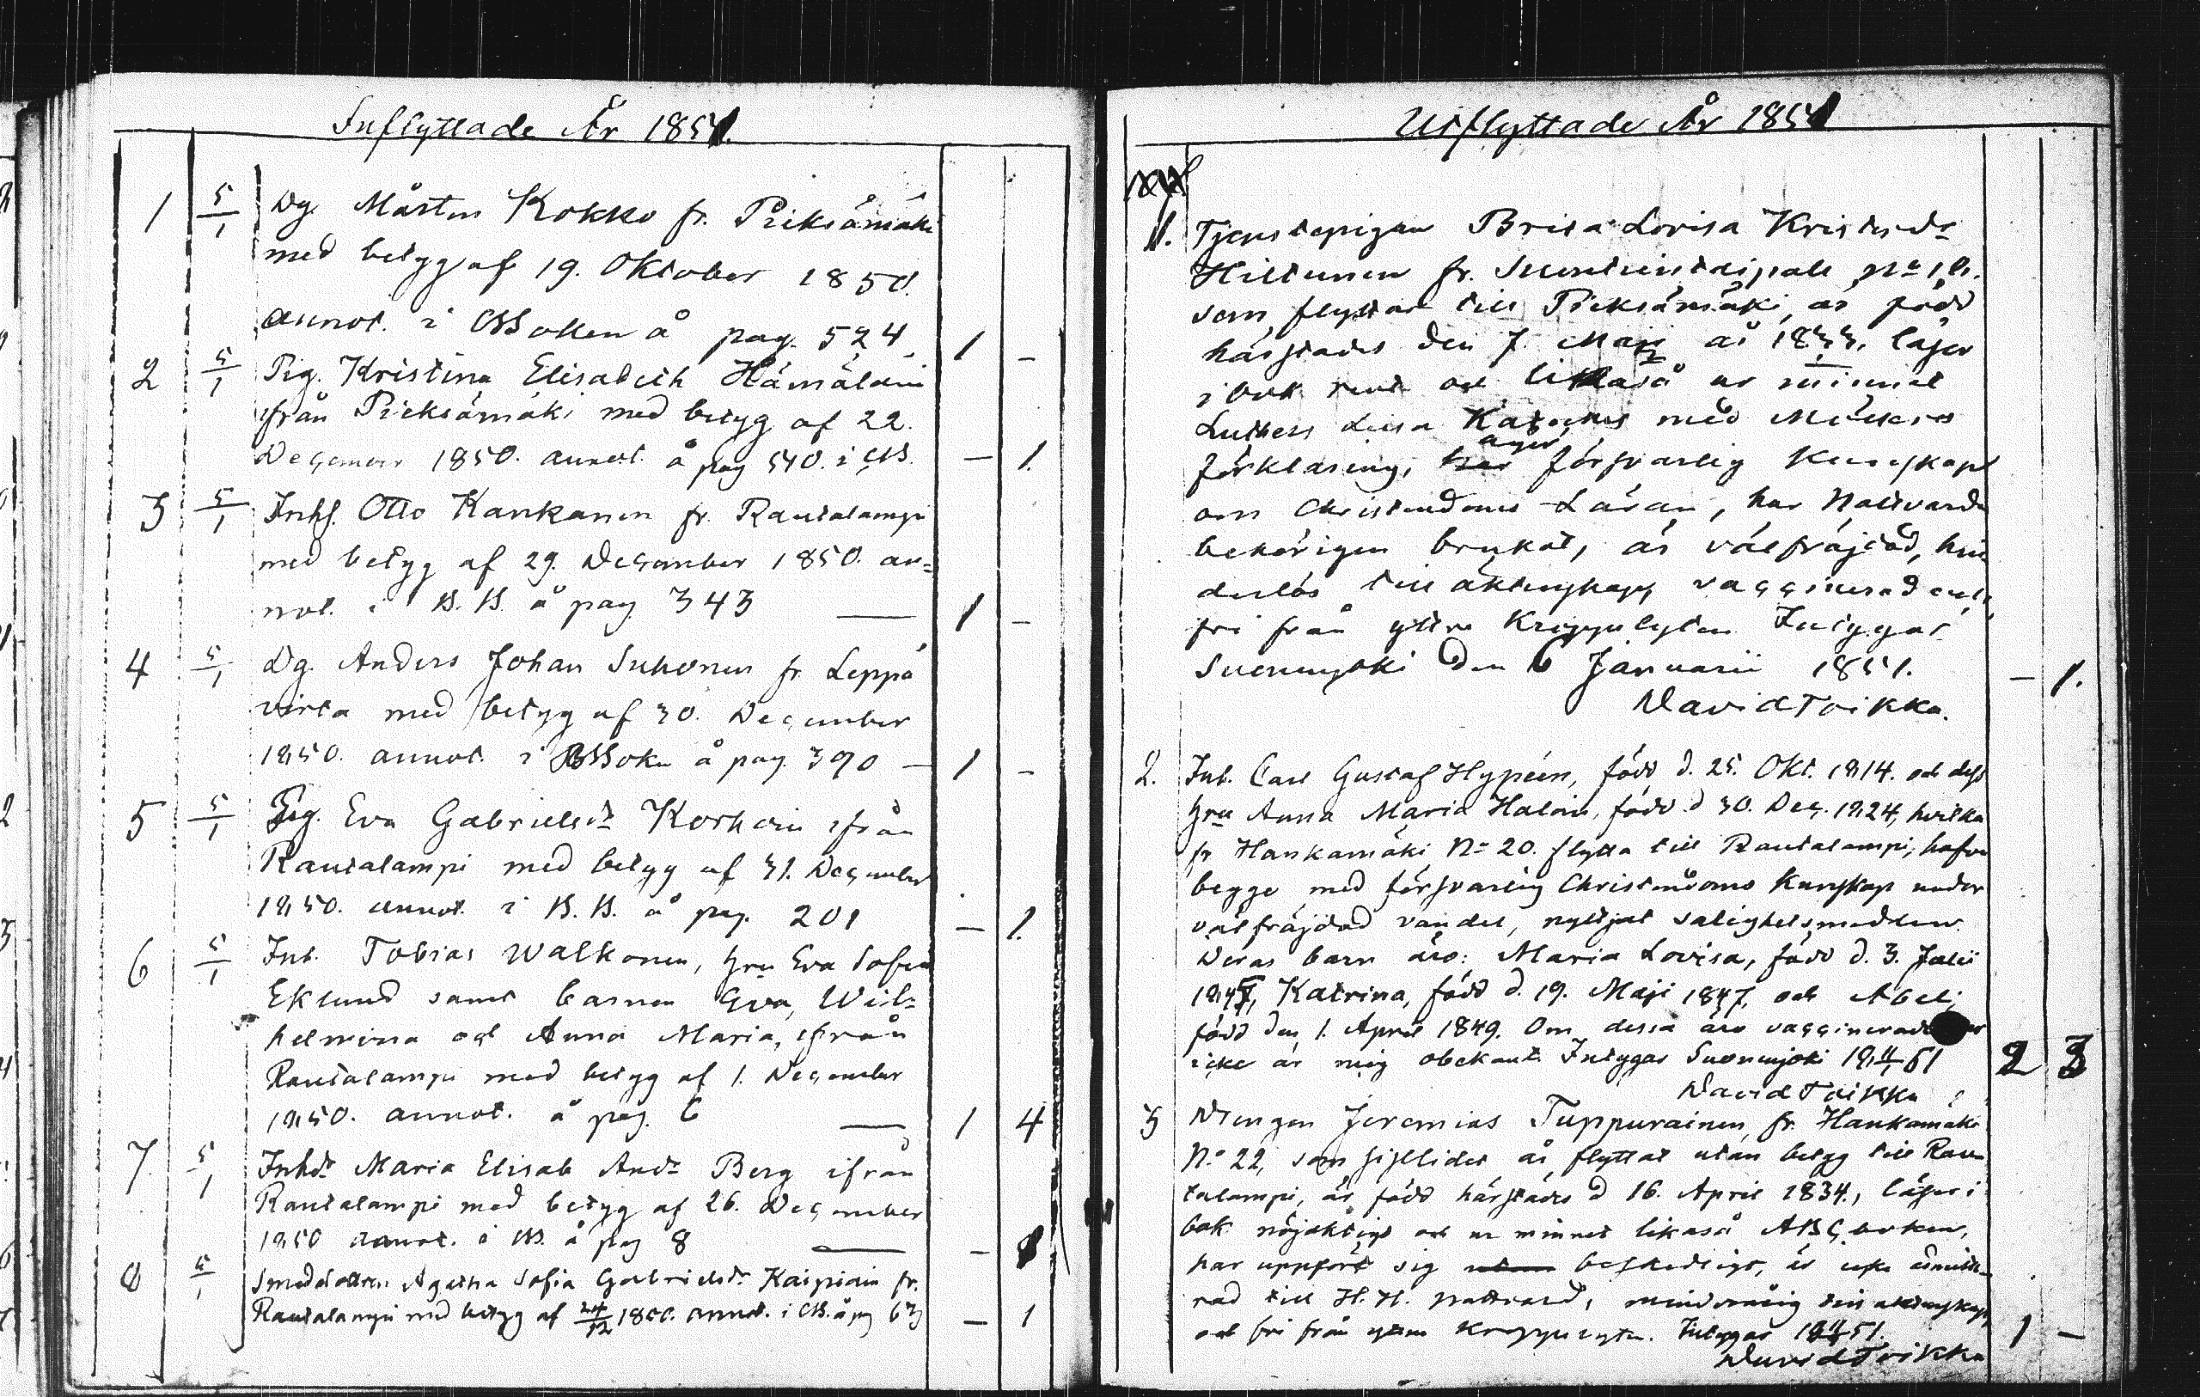 Inflyttade År 1851.
1 5/1 Dg. Mårten Kokko fr. Pieksämäki
med betyg af 19. Oktober 1850.
annot. i Boken å pag. 524 1 –
2 5/1 Pig. Kristina Elisabeth Hämäläin
ifrån Pieksämäki med betyg af 22.
December 1850. annot. å pag 540. i – 1.
3 5/1 Inhs. Otto Kankanen fr. Rautalampi
med betyg af 29. December 1850. an=
not. i K.B. å pag 343 — 1 –
4 5/1 Dg. Anders Johan Suhonen fr. Leppä
virta med betyg af 30. December
1850. annot. i Boken å pag 390 – 1 –
5 5/1 Pig. Eva Gabrielsdr Korhoin ifrån
Rautalampi med betyg af 31. December
1850. annot. i K.B. å pag. 201 – 1.
6 5/1 Inh. Tobias Walkonen, hru Eva Sofia
Eklund samt barnen Eva, Wil=
helmina och Anna Maria, ifrån
Rautalampi med betyg af 1. December
1850. annot. å pag. 6 — 1 4
7 5/1 Inhdr Maria Elisab Andr Berg ifrån
Rautalampi med betyg af 26. December
1850 annot. i å pag 8 — – 1
8 5/1 Smeddottren Agatha Sofia Gabrielsdr Kaipiain fr.
Rautalampi med betyg af 24/12 1850. annot. i å pag 63 – 1
Utflyttade År 1851
1. Tjenstepigan Brita Lovisa Kristersdr
Hiltunen fr. No 18.
som flyttar till Pieksämäki, är född
härstädes den 7. Maji år 1833, läser
i bok rent och likaså ur minnet
Luthers Lilla Kateches med
förklaring, äger försvarlig kunskap
om Christendoms Läran, har Nattvarden
behörigen brukat, är välfräjdad, hin
derlös till äktenskap, vaccinerad och
fri från yttre Kroppslyten Intygar
Suonenjoki den 6 Januarii 1851. – 1.
David Toikka.
2. Inh. Carl Gustaf Hypéen, född d. 25. Okt. 1814. och dess
hru Anna Maria Haloin, född d 30. Dec. 1824, hvilka
fr Hankamäki No 20. flytta till Rautalampi, hafva
begge med försvarlig Christendoms Kunskap under
välfräjdad vandel, nyttjat salighetsmedlen.
Deras barn äro: Maria Lovisa, född d. 3. Julii
1845, Katrina, född d. 19. Maji 1847, och Abel,
född den 1. April 1849. Om dessa äro vaccinerade eller
icke är mig obekant. Intygar Suonenjoki 18 51 2 3
David Toikka
3 Drengen Jeremias Tuppurainen, fr. Hankamäki
No 22, som sistlidet år flyttat utan betyg till Rau
talampi, är född härstädes d 16. April 1834., läser i
bok nöjaktigt och ur minnet likaså ABC boken,
har uppfört sig beskedligt, är icke admitte-
rad till H. H. Nattvard, minderårig till äktenskap,
och fri från yttre kroppslyten. Intygar 18 51. 1 –
David Toikka